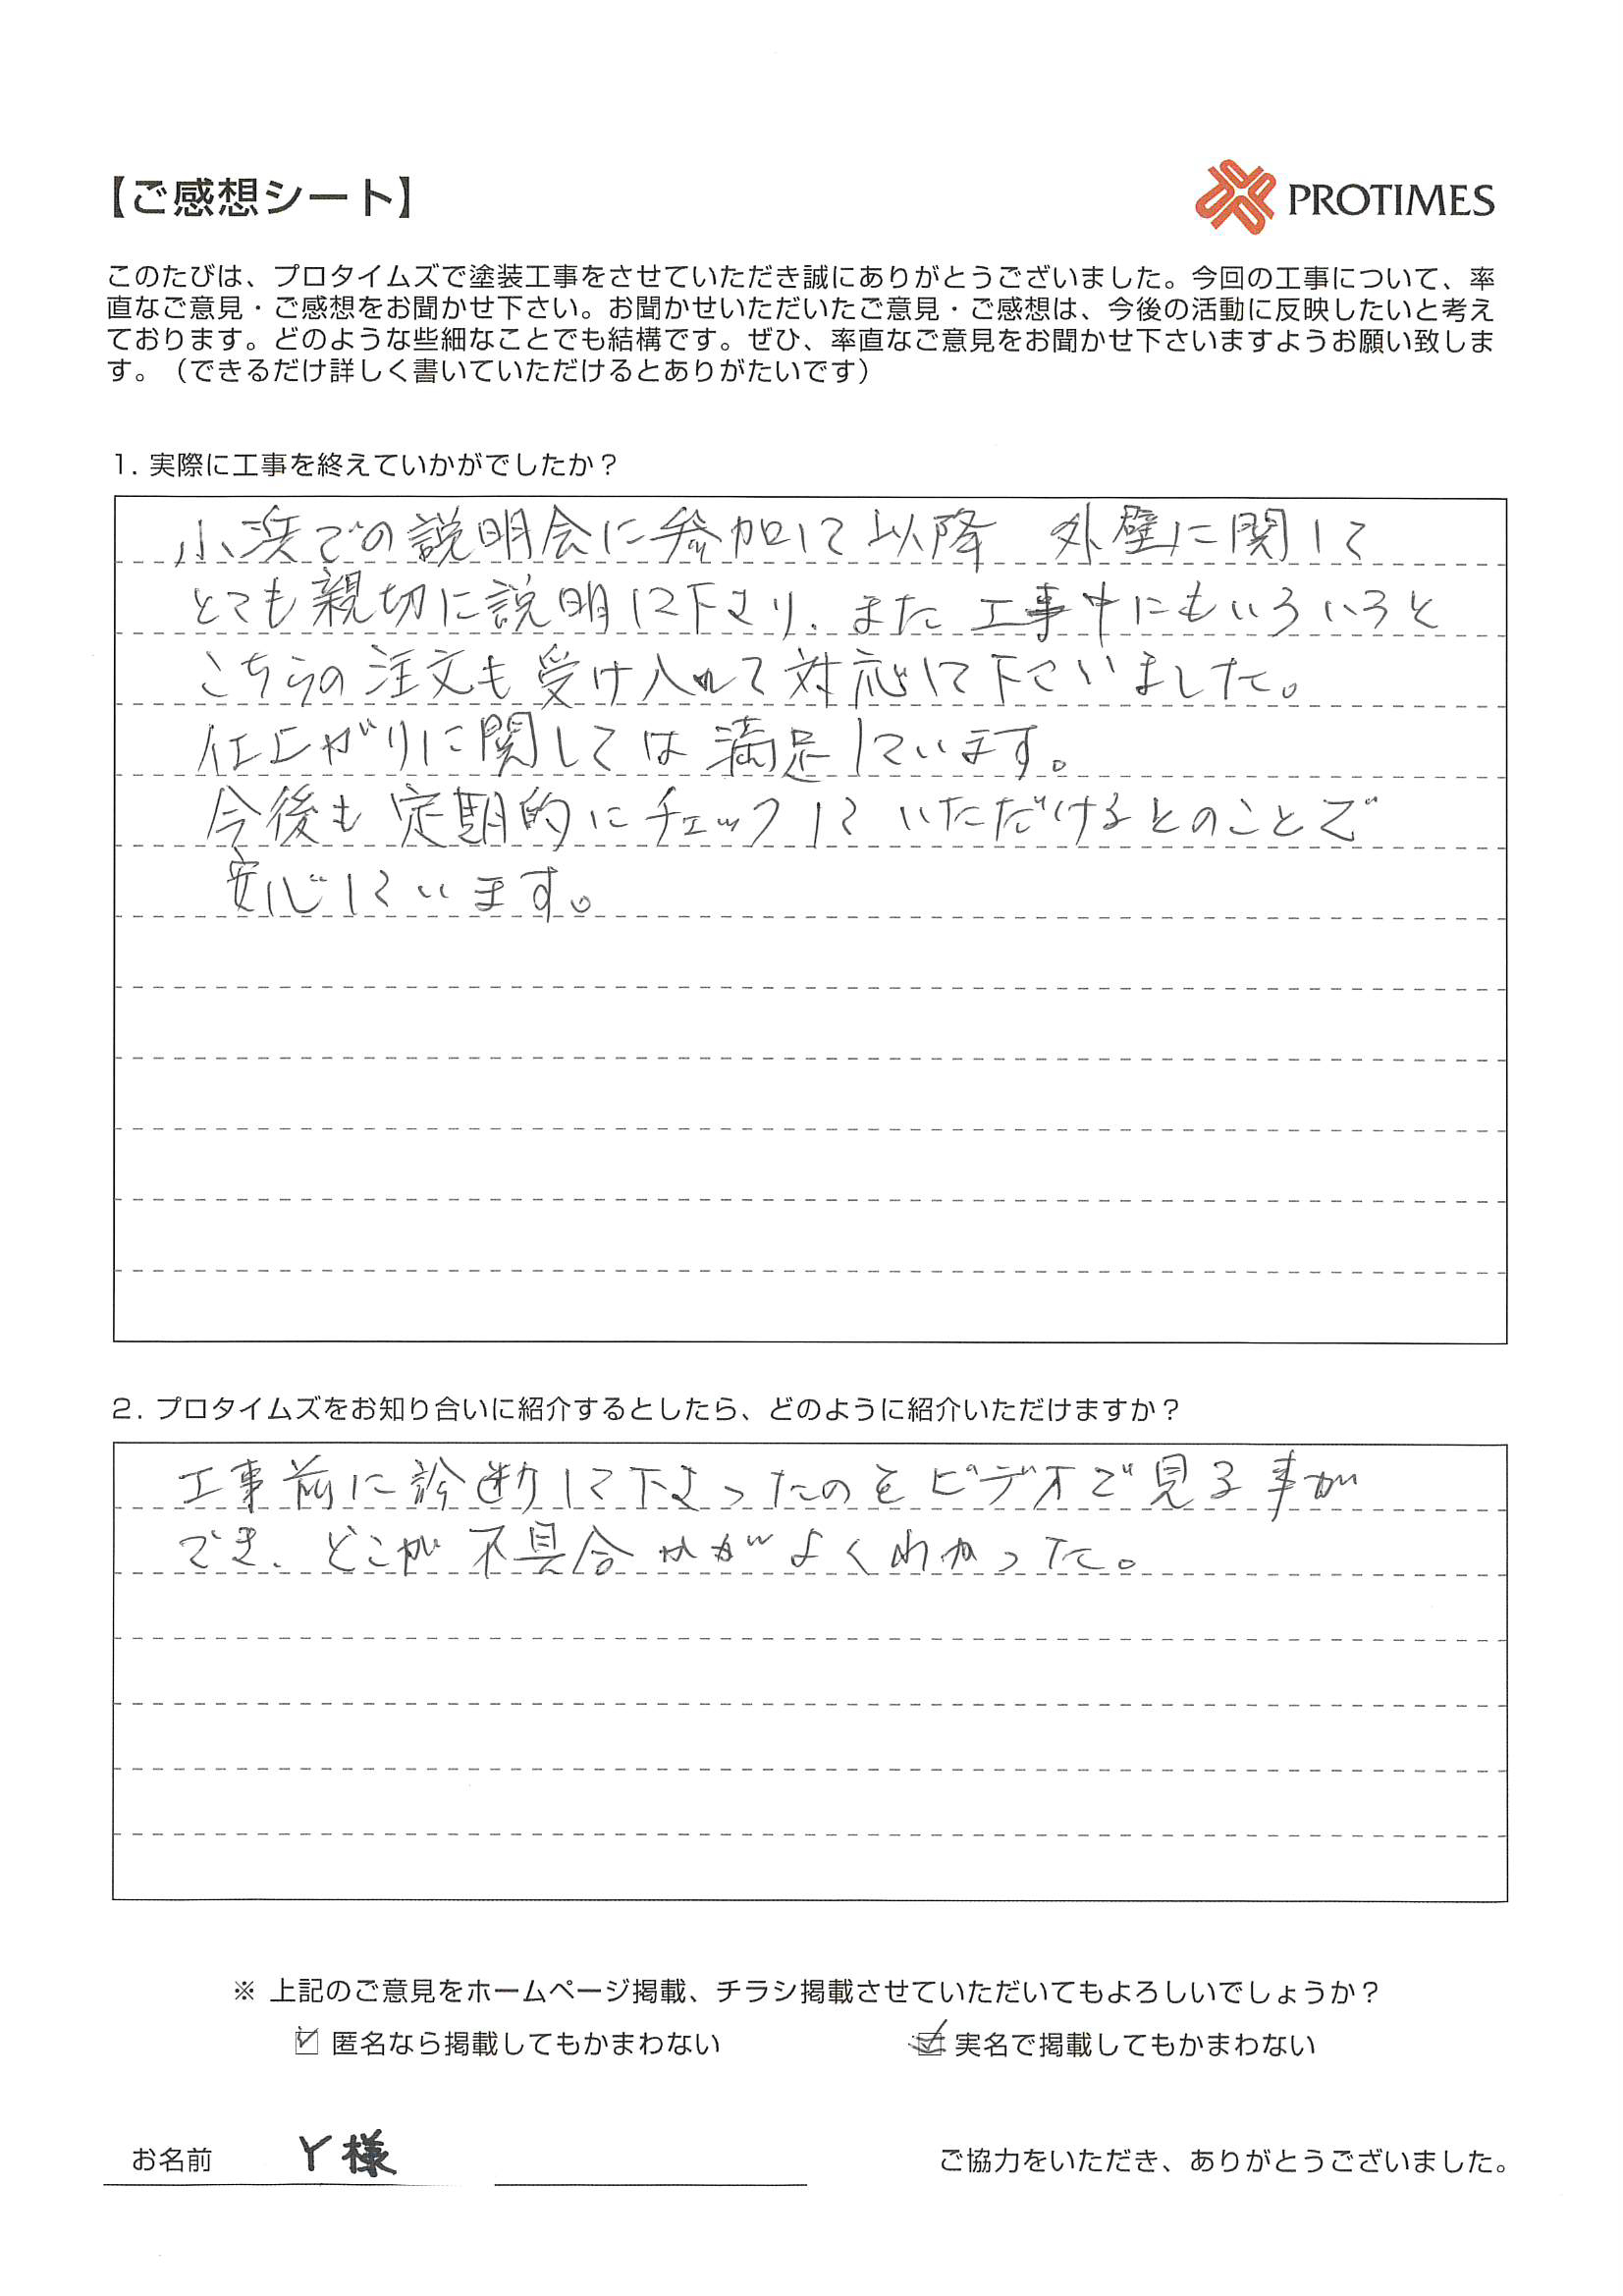 【ご感想シート】
PROTIMES
このたびは、プロタイムズで塗装工事をさせていただき誠にありがとうございました。今回の工事について、率
直なご意見・ご感想をお聞かせ下さい。お聞かせいただいたご意見・ご感想は、今後の活動に反映したいと考え
ております。どのような些細なことでも結構です。ぜひ、率直なご意見をお聞かせ下さいますようお願い致しま
す。（できるだけ詳しく書いていただけるとありがたいです）
1. 実際に工事を終えていかがでしたか？
小浜での説明会に参加して以降 外壁に関して
とても親切に説明して下さり、また工事中にもいろいろと
こちらの注文も受け入れて対応して下さいました。
仕上がりに関しては満足しています。
今後も定期的にチェックしていただけるとのことで
安心しています。
2. プロタイムズをお知り合いに紹介するとしたら、どのように紹介いただけますか？
工事前に診断して下さったのをビデオで見る事が
でき、どこが不具合かがよくわかった。
※ 上記のご意見をホームページ掲載、チラシ掲載させていただいてもよろしいでしょうか？
匿名なら掲載してもかまわない 実名で掲載してもかまわない
お名前 Y様 ご協力をいただき、ありがとうございました。